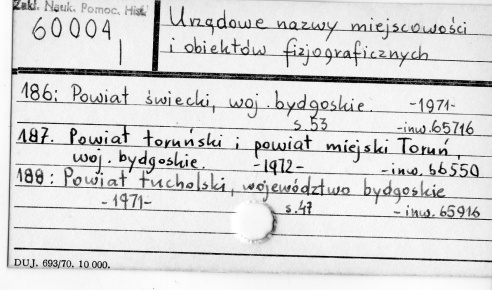 Zakł. Nauk. Pomoc. Hist.
60004
I
Urzędowe nazwy miejscowości
i obiektów fizjograficznych
186: Powiat świecki, woj. bydgoskie. -1971-
s.53 -inw.65716
187. Powiat toruński i powiat miejski Toruń,
woj. bydgoskie. -1972- -inw. 66550
188: Powiat tucholski, województwo bydgoskie
-1971- s.47 -inw. 65916
DUJ. 693/70. 10 000.